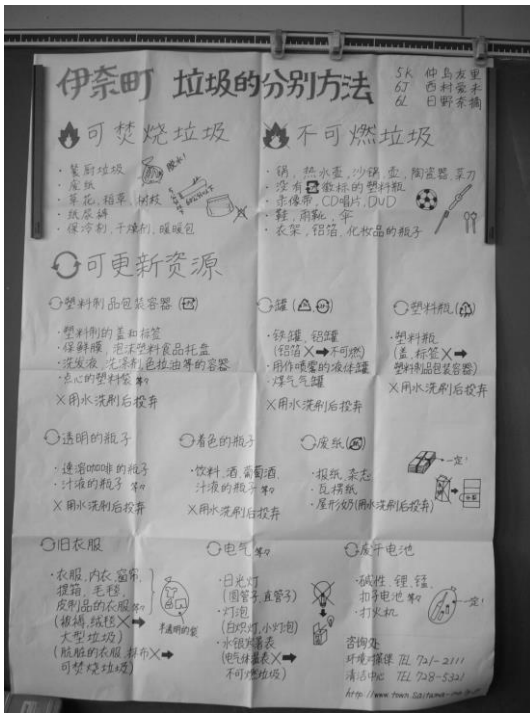 伊奈町 垃圾的分别方法
5K 仲島友里
6J 西村愛未
6L 日野奈摘
可焚烧垃圾
脱水!
· 餐厨垃圾
· 废纸
· 草花、稻草、树枝
· 纸尿裤
· 保冷剂、干燥剂、暖暖包
不可燃垃圾
· 锅、热水壶、沙锅、壶、陶瓷器、菜刀
· 没有 徽标的塑料瓶
· 录像带、CD唱片、DVD
· 鞋、雨靴、伞
· 衣架、铝箔、化妆品的瓶子
可更新资源
塑料制品包装容器
· 塑料制的盖和标签
· 保鲜膜、泡沫塑料食品托盘
· 洗发液、洗涤剂色拉油等的容器
· 点心的塑料袋 等々
X用水洗刷后投弃
罐
· 铁罐、铝罐
(铝箔X➡不可燃)
· 用作喷雾的液体罐
· 煤气气罐
X用水洗刷后投弃
塑料瓶
· 塑料瓶
(盖、标签X➡
塑料制品包装容器)
X用水洗刷后投弃
透明的瓶子
· 速溶咖啡的瓶子
· 汁液的瓶子 等々
X用水洗刷后投弃
着色的瓶子
· 饮料、酒、葡萄酒、
汁液的瓶子 等々
X用水洗刷后投弃
废纸
· 报纸、杂志
· 瓦楞纸
· 屋形奶(用水洗刷后投弃)
一定!
旧衣服
· 衣服、内衣、窗帘、
提箱、毛毯、
皮制品的衣服等々
(被褥、绒毯X➡
大型垃圾)
(脏脏的衣服、抹布X➡
可焚烧垃圾)
不透明的袋
电气 等々
· 日光灯
(圆管子、直管子)
· 灯泡
(白炽灯、小灯泡)
· 水银体温表
(电气体温表X➡
不可燃垃圾)
废干电池
· 碱性、锂、锰、
扣子电池 等々
· 打火机
一定!
咨询处
环境对策课 TEL 721-2111
清洁中心 TEL 728-5321